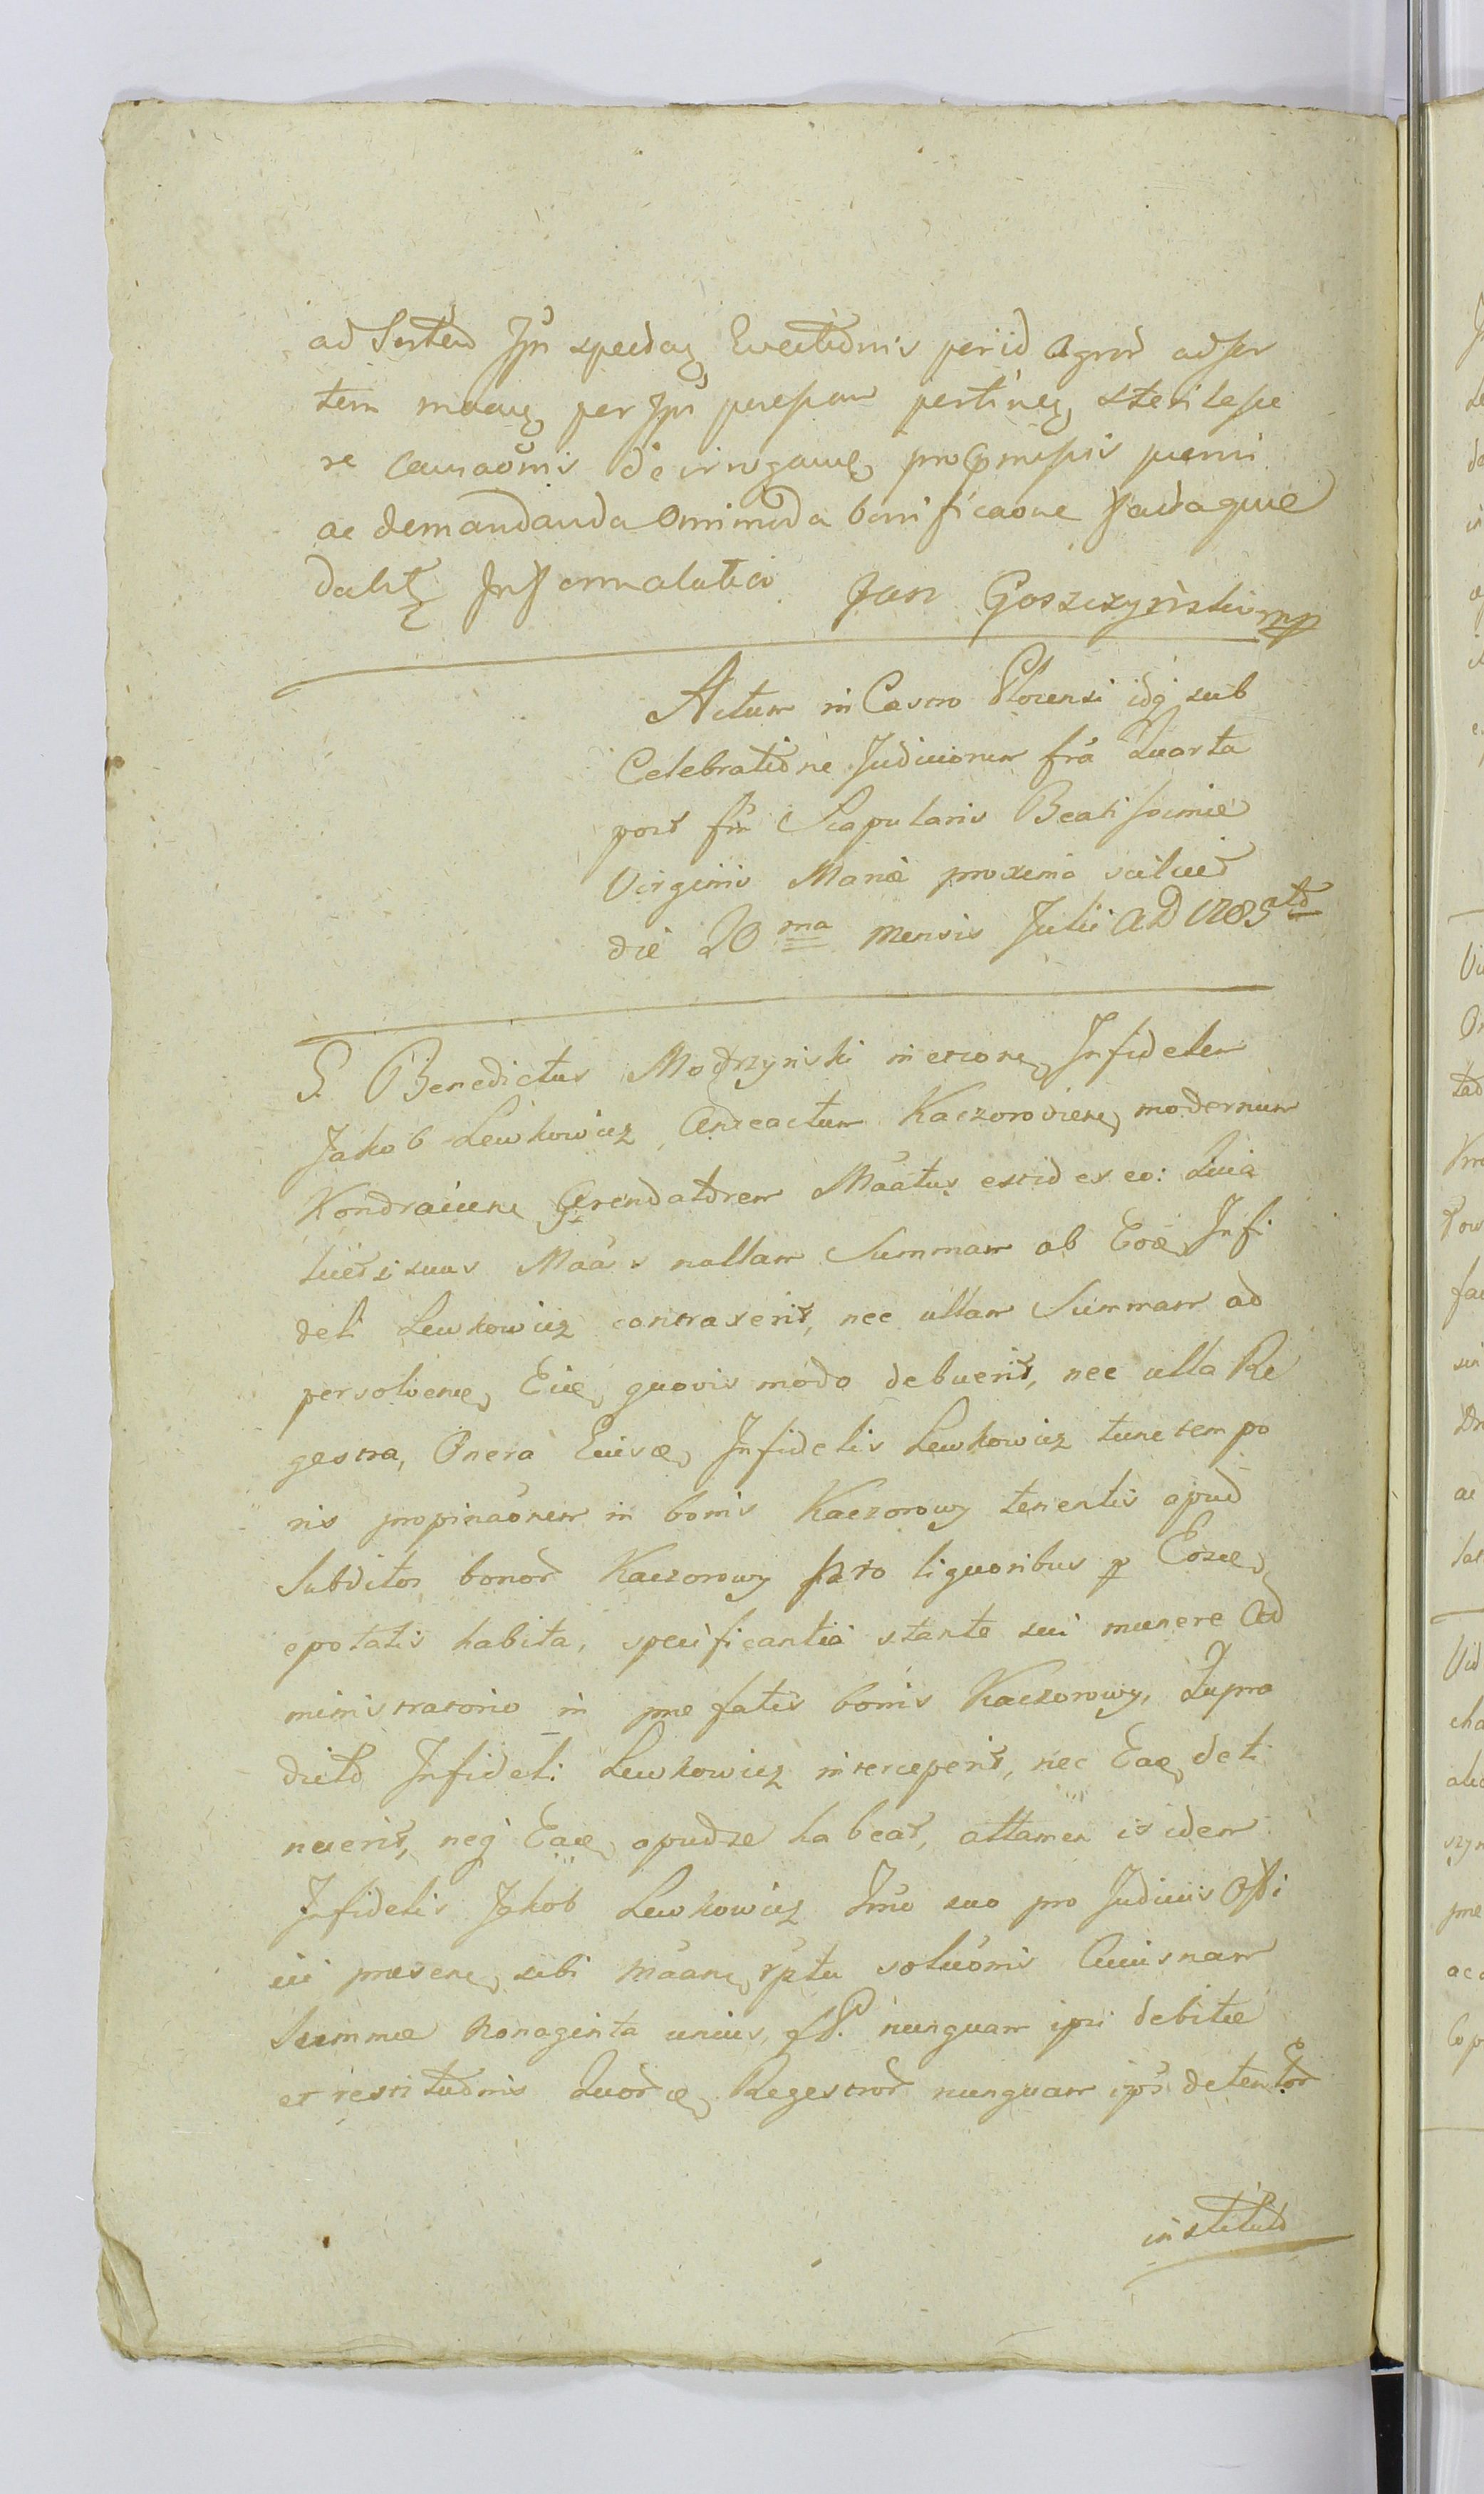 ad Sortem Ipsi specdam Evectionis periid agror adsor
tem maam per Ipsi pressam pertinen, sterilesce
re causaonis deirrogame, pro præmissis puniri
ac demandanda Omimoda bonificaone factaque
dabit In formalalia Jan Goszczyński mp
Actum in Castro Plocensi idq sub
Celebratione Judiciorum fra Quarta
post fm Scapularis Beatissimæ
Virginis Mariæ proxima scilicet
die 20 ma Mensis Julii AD 1785 to
G. Benedictus Modrzyński in ersone, Infidelem
Jakob Lewkowicz, Anteactum Kaczoroviens, modernum
Kondraiens Arendatorem Maatus est id ex eo: Quia
licet isuus Maas nullam Summam ab Eoæ, Infi
deli Lewkowicz contraxerit, nec ullam Summam ad
persolvene, Eiæ, quovis modo debuerit, nec ulla Re
gestra, Onera Eiusæ, Infidelis Lewkowicz tunc tempo
ris propinaonem in bonis Kaczorowy tenentis apud
Subditos bonor Kaczorowy pro liquoribus p Eosæ,
epotatis habita, specificantia stante sui munere Ad
ministratorio in præfatis bonis Kaczorowy, Supra
dicto Infideli Lewkowicz interceperit, nec Eaæ, deti
nuerit, neq Eaæ, apud se habeat, attamen is idem
Infidelis Jakob Lewkowicz Imo suo pro Judiciis Offi
cii præsens, sibi maane, rptu solvonis Cuiusnam
Summæ Nonaginta unius, fP. nunquam ipsi debitæ
et restitutionis Quoræ, Regestror nunquam ipsi detentor
institut